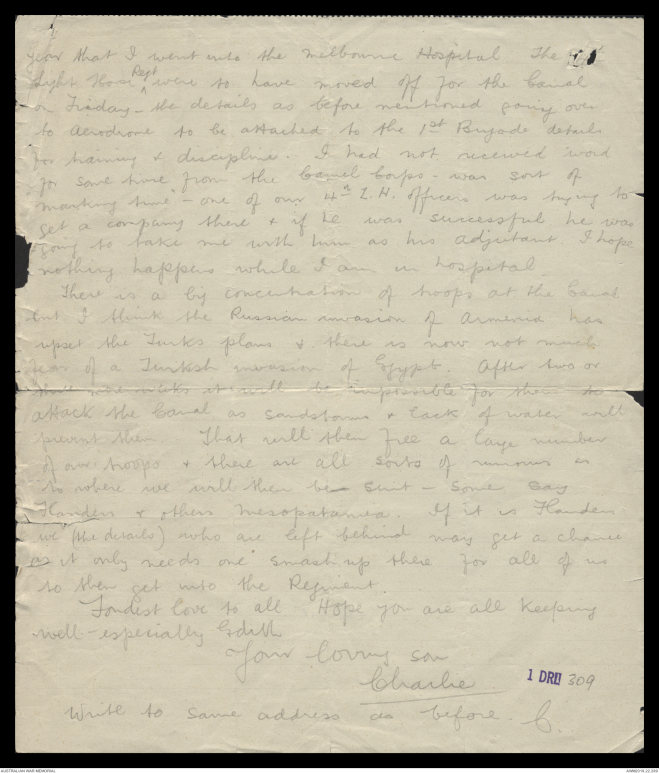 year that I went into the Melbourne Hospital The 4th
Light Horse Regt were to have moved off for the Canal
on Friday - the details as before mentioned going over
to Aerodrome to be attached to the 1st Brigade details
for training & discipline. I had not received word
for some time from the Camel Corps - was sort of
"marking time" - one of our 4th L.H. officers was trying to
get a company there & if he was successful he was
going to take me with him as his adjutant I hope
nothing happens while I am in hospital
There is a big concentration of troops at the Canal
but I think the Russian invasion of Armenia has
upset the Turks plans & there is now not much
fear of a Turkish invasion of Egypt. After two or
three more weeks it will be impossible for them to
attack the Canal as sandstorms & lack of water will
prevent them. That will then free a large number
of our troops & there are all sorts of rumours as
to where we will then be sent - some say
Flanders & others Mesopotamia. If it is Flanders
we (the details) who are left behind may get a chance
as it only needs one smash up there for all of us
to then get into the Regiment.
Fondest love to all Hope you are all keeping
well - especially Edith
Your loving son
Charlie.
1 DRL 309
Write to same address as before. C.
AUSTRALIAN WAR MEMORIAL